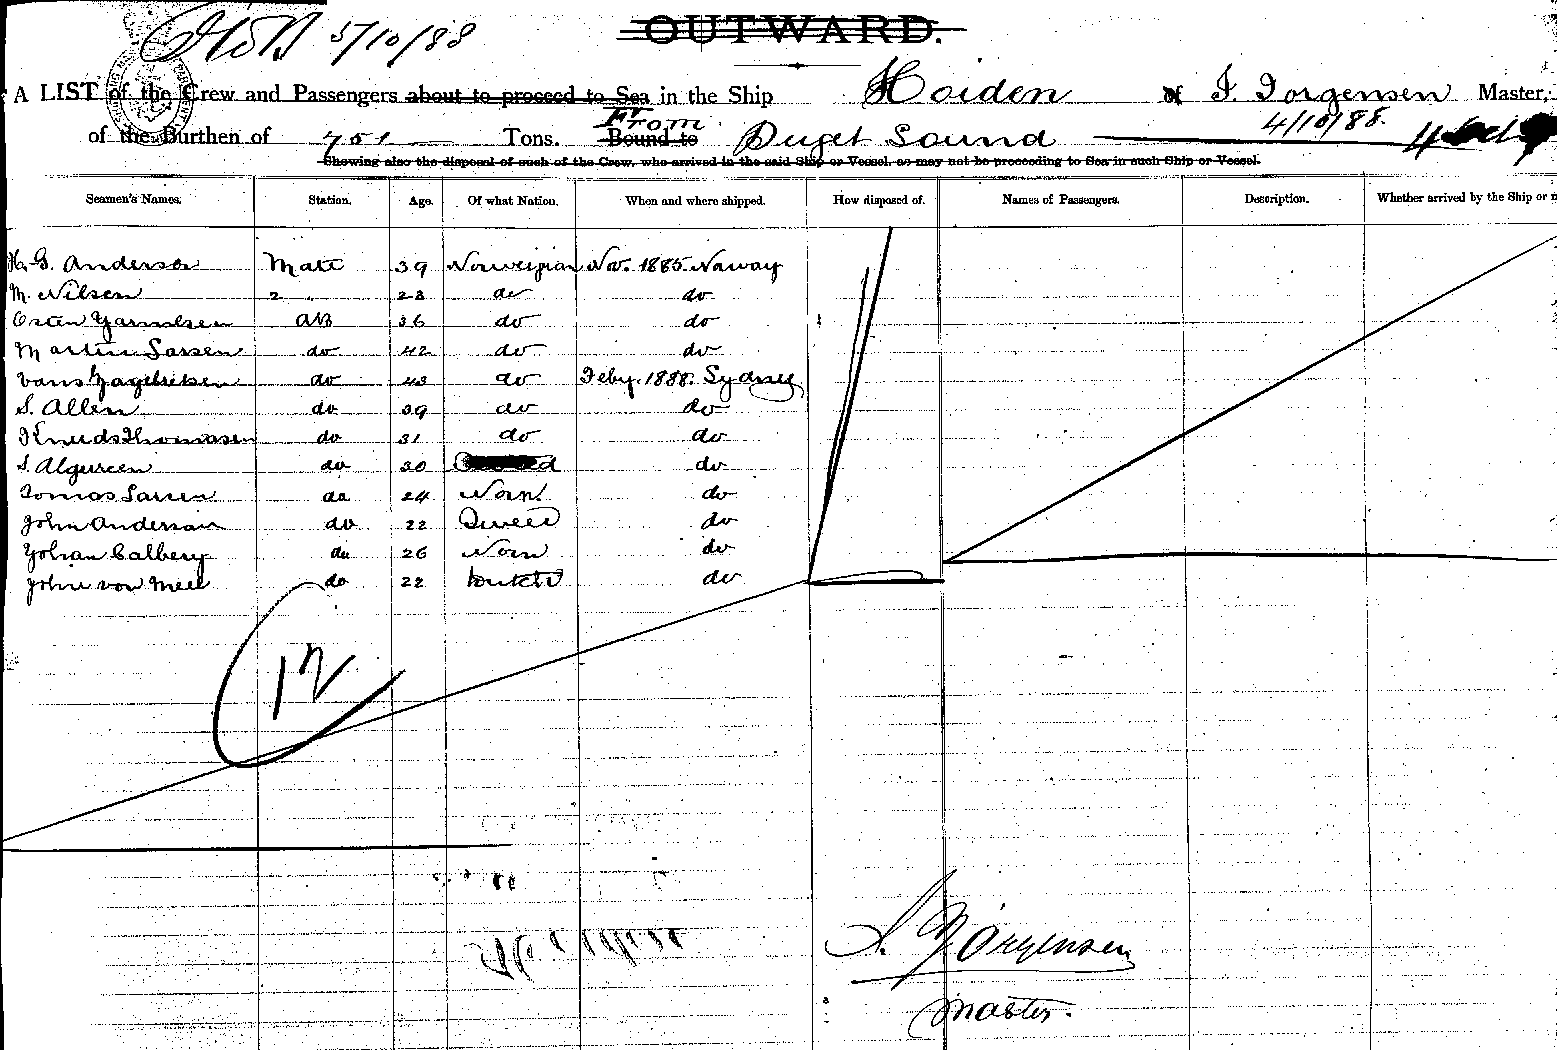 5/10/88
OUTWARD.
A LIST of the Crew and Passengers about to proceed to Sea in the Ship Hoiden of I. Jorgensen Master,
4/10/88.
of the Burthen of 751 Tons. Bound to From Puget Sound
Shewing also the disposal of such of the Crew, who arrived in the said Ship or Vessel, as may not be proceeding to Sea in such Ship or Vessel.
Seamen's Names. Station. Age. Of what Nation. When and where shipped. How disposed of. Names of Passengers. Description. Whether arrived by the Ship or
H. G. Anderson Mate 39 Norwegian Nov. 1885 Norway
M. Nilsen 2 " 28 do do
Osten AB 36 do do
Martin Larsen do 42 do do
do 43 do Feby. 1888. Sydney
S. Allen do 39 do do
Knuds Thomassen do 31 do do
S. do 30 do
Tomas Larsen do 24 Norw do
John Anderson do 22 Sweed do
Yohan Calberg do 26 Norw do
John von Meel do 22 Dutch do
12
I. Jorgensen
Master.